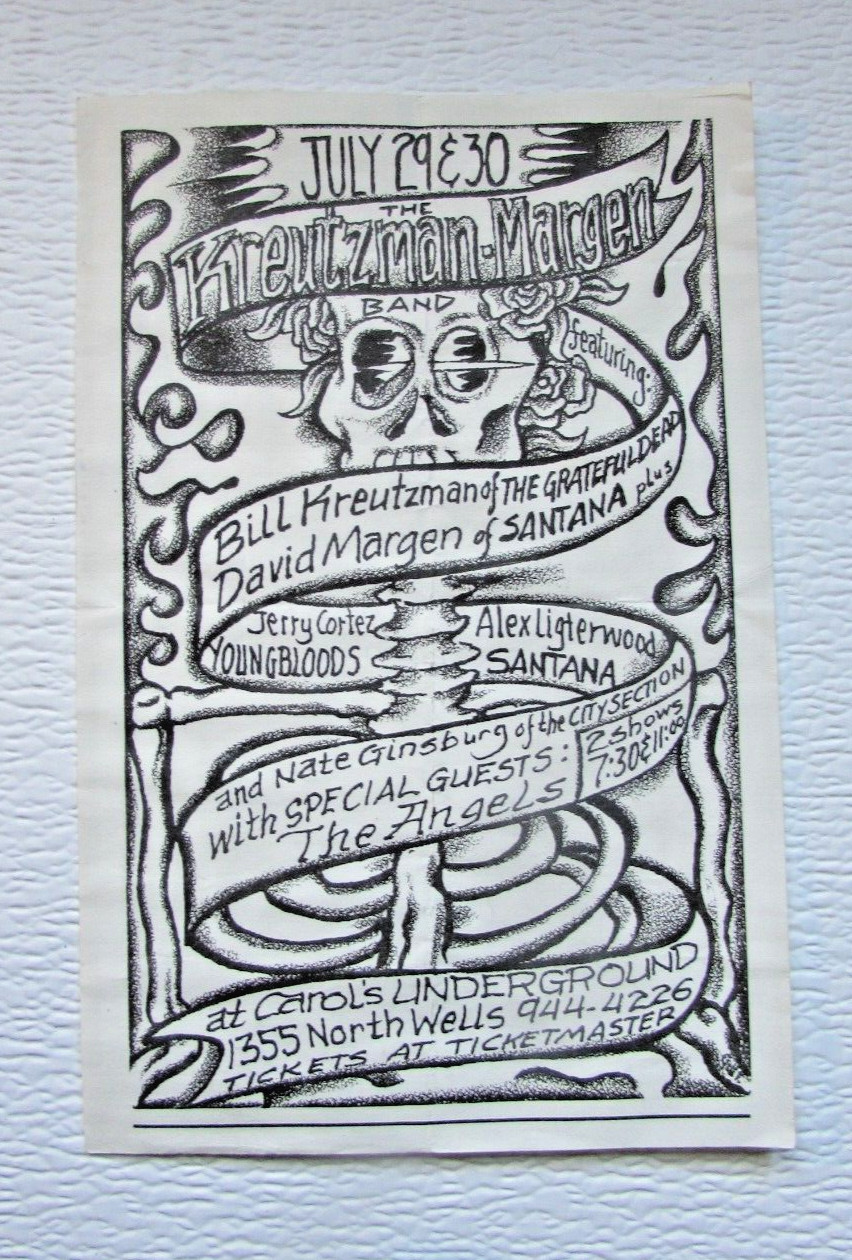 JULY 29 & 30
THE
Kreutzman-Margen
BAND
featuring:
Bill Kreutzman of THE GRATEFUL DEAD
David Margen of SANTANA plus
Jerry Cortez
YOUNGBLOODS
Alex Ligterwood
SANTANA
and Nate Ginsburg of the CITY SECTION
with SPECIAL GUESTS:
The Angels
2 shows
7:30 & 11:00
at Carol's UNDERGROUND
1355 North Wells 944-4226
TICKETS AT TICKETMASTER